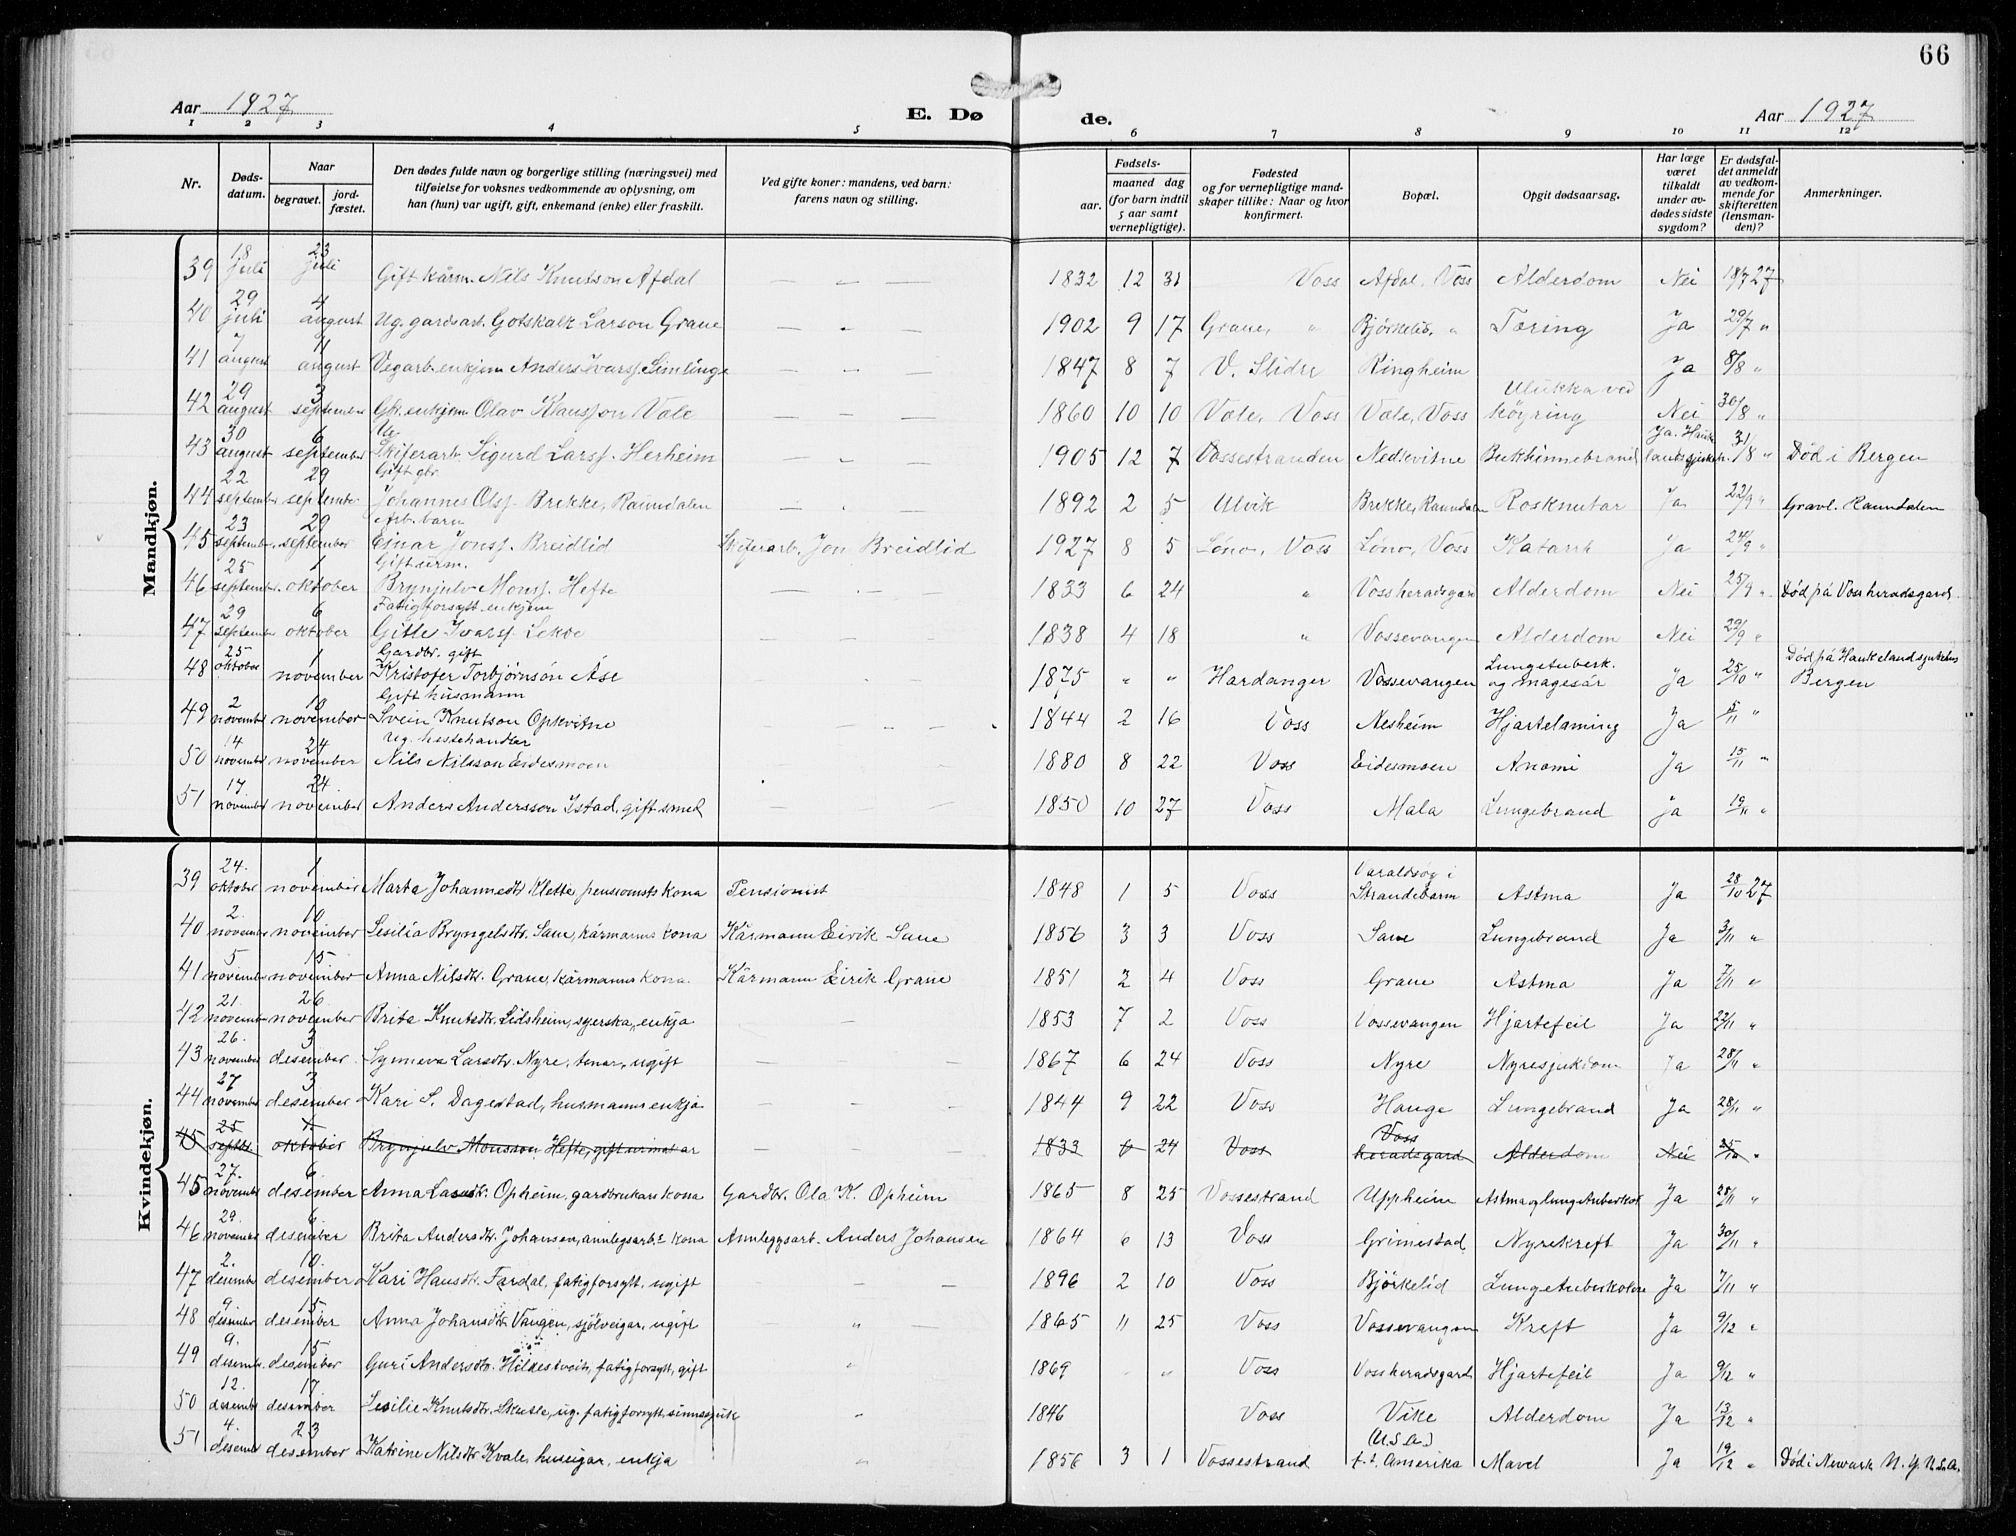 66
Aar 1927
E. Dø
de.
Aar 1927
1 2 3 4 5 6 7 8 9 10 11 12
Nr.
Døds-
datum.
Naar
begravet.
jord-
fæstet.
Den dødes fulde navn og borgerlige stilling (næringsvei) med
tilføielse for voksnes vedkommende av oplysning, om
han (hun) var ugift, gift, enkemand (enke) eller fraskilt.
Ved gifte koner: mandens, ved barn:
farens navn og stilling.
Fødsels-
aar.
maaned dag
(for barn indtil
5 aar samt
vernepligtige).
Fødested
og for vernepligtige mand-
skaper tillike: Naar og hvor
konfirmert.
Bopæl.
Opgit dødsaarsag.
Har læge
været
tilkaldt
under av-
dødes sidste
sygdom?
Er dødsfal-
det anmeldt
av vedkom-
mende for
skifteretten
(lensman-
den)?
Anmerkninger.
Mandkjøn.
39 18 juli 23 juli Gift kårm. Nils Knutson Afdal — „ — 1832 12 31 Voss Afdal, Voss Alderdom Nei 18/7 27
40 29 juli 4 august Ug. gardsarb. Gotskalk Larson Grane — „ — 1902 9 17 Grane, „ Bjørkelid, „ Tæring Ja 29/7 „
41 7 august 11 august Vegarb. enkjem Anders Ivarss. Simlinge — „ — 1847 8 7 V. Slidre Ringheim Ja 8/8 „
42 29 august 3 september Gbr. enkjem Olav Klausson Væle — „ — 1860 10 10 Væle, Voss Væle, Voss Ulukka ved köyring Nei 30/8 „
43 30 august 6 september Ug. Skiferarb. Sigurd Larss. Herheim — „ — 1905 12 7 Vossestranden Nedkvitne Bukhinnebrand Ja. Haukelandssjukeh. 31/8 „ Død i Bergen
44 22 september 29 september Gift gbr. Johannes Olss. Brekke, Raundalen — — 1892 2 5 Ulvik Brekke, Raundalen Rosknutar Ja 22/9 „ Gravl. Raundalen
45 23 septemb. 29 september Arb. barn Einar Jonss. Breidlid Skiferarb. Jon Breidlid 1927 8 5 Löno, Voss Löno, Voss Katarrh Ja 24/9 „
46 25 septemb. 1 oktober Gift urm. Brynjulv Monss. Hefte — — — 1833 6 24 „ Vossheradsgard Alderdom Nei 25/9 „ Död på Vossheradsgard
47 29 septemb. 6 oktober Fatigforsytt. enkjem Gitle Ivarss. Lekve — — — 1838 4 18 „ Vossevangen Alderdom Nei 29/9 „
48 25 oktober 1 november Gardbr. gift Kristofer Torbjørnsön Åse — — — 1875 „ „ Hardanger Vossevangen Lungetuberk. og magesår Ja 25/10 „ Död på Haukelandsjukehus Bergen
49 2 november 10 november Gift husmann Svein Knutson Opkvitne — — — 1844 2 16 Voss Nesheim Hjartelaming Ja 5/11 „
50 14 november 24 november Ug. hestehandler Nils Nilsson Eidesmoen — — — 1880 8 22 Voss Eidesmoen Anæmi Ja 15/11 „
51 17 november 24 november Anders Andersson Istad, gift smed — — — 1850 10 27 Voss Mala Lungebrand Ja 19/11 „
Kvindekjøn.
39 24. oktober 1 november Marta Johannesdtr. Klette, pensionists kona Pensionist 1848 1 5 Voss Varaldsøy i Strandebarm Astma Ja 28/10 27
40 2. november 10 november Sesilia Bryngelsdtr. Sane, kårmanns kona Kårmann Eirik Sane 1856 3 3 Voss Sane Lungebrand Ja 3/11 „
41 5 november 15 november Anna Nilsdtr. Grane, kårmanns kona. Kårmann Eirik Grane 1851 2 4 Voss Grane Astma Ja 7/11 „
42 21. november 26 november Brita Knutsdtr. Lidsheim, syerska, enkja — — 1853 7 2 Voss Vossevangen Hjartefeil Ja 22/11 „
43 26. november 3 desember Synneva Larsdtr. Nyre, tenar, ugift — — — 1867 6 24 Voss Nyre Nyresjukdom Ja 28/11 „
44 27 november 3 desember Kari S. Dagestad, husmanns enkja — — — 1844 9 22 Voss Hauge Lungebrand Ja 28/11 „
45 25 septbr. 1. oktober Brynjulv Monsson Hefte, gift urmakar — — — 1833 6 24 Voss Voss heradsgard Alderdom Nei 25/10 „
45 27. november 6. desember Anna Larsdtr. Opheim, gardbrukars kona Gardbr. Ola K. Opheim 1865 8 25 Vossestrand Uppheim Astma og lungetuberkol. Ja 28/11 „
46 29. november 6. desember Brita Andersdtr. Johansen, annlegsarb.s kona Annleggsarb. Anders Johansen 1864 6 13 Voss Grimestad Nyrekreft Ja 30/11 „
47 2. desember 10. desember Kari Hansdtr. Fardal, fatigforsytt, ugift — — — 1896 2 10 Voss Björkelid Lungetuberkolose Ja 7/11 „
48 9 desember 15 desember Anna Johansdtr. Vangen, sjölveigar, ugift — „ — 1865 11 25 Voss Vossevangen Kreft Ja 9/12 „
49 9. desemb. 15 desember Guri Andersdtr. Hildestveit, fatigforsytt, gift „ 1869 „ „ Voss Vossheradsgard Hjartefeil Ja 9/12 „
50 12. desember 17 desember Sesilie Knutsdtr. Skutle, ug. fatigforsytt, sinnssjuk „ 1846 Voss Vike Alderdom Ja 13/12 „
51 4. desember 23 desember Katrine Nilsdtr. Kvale, huseigar, enkja „ 1856 3 1 Vossestrand (U.S.A.) f. t. Amerika Ja 19/12 „ Död i Newark N. Y. U.S.A.